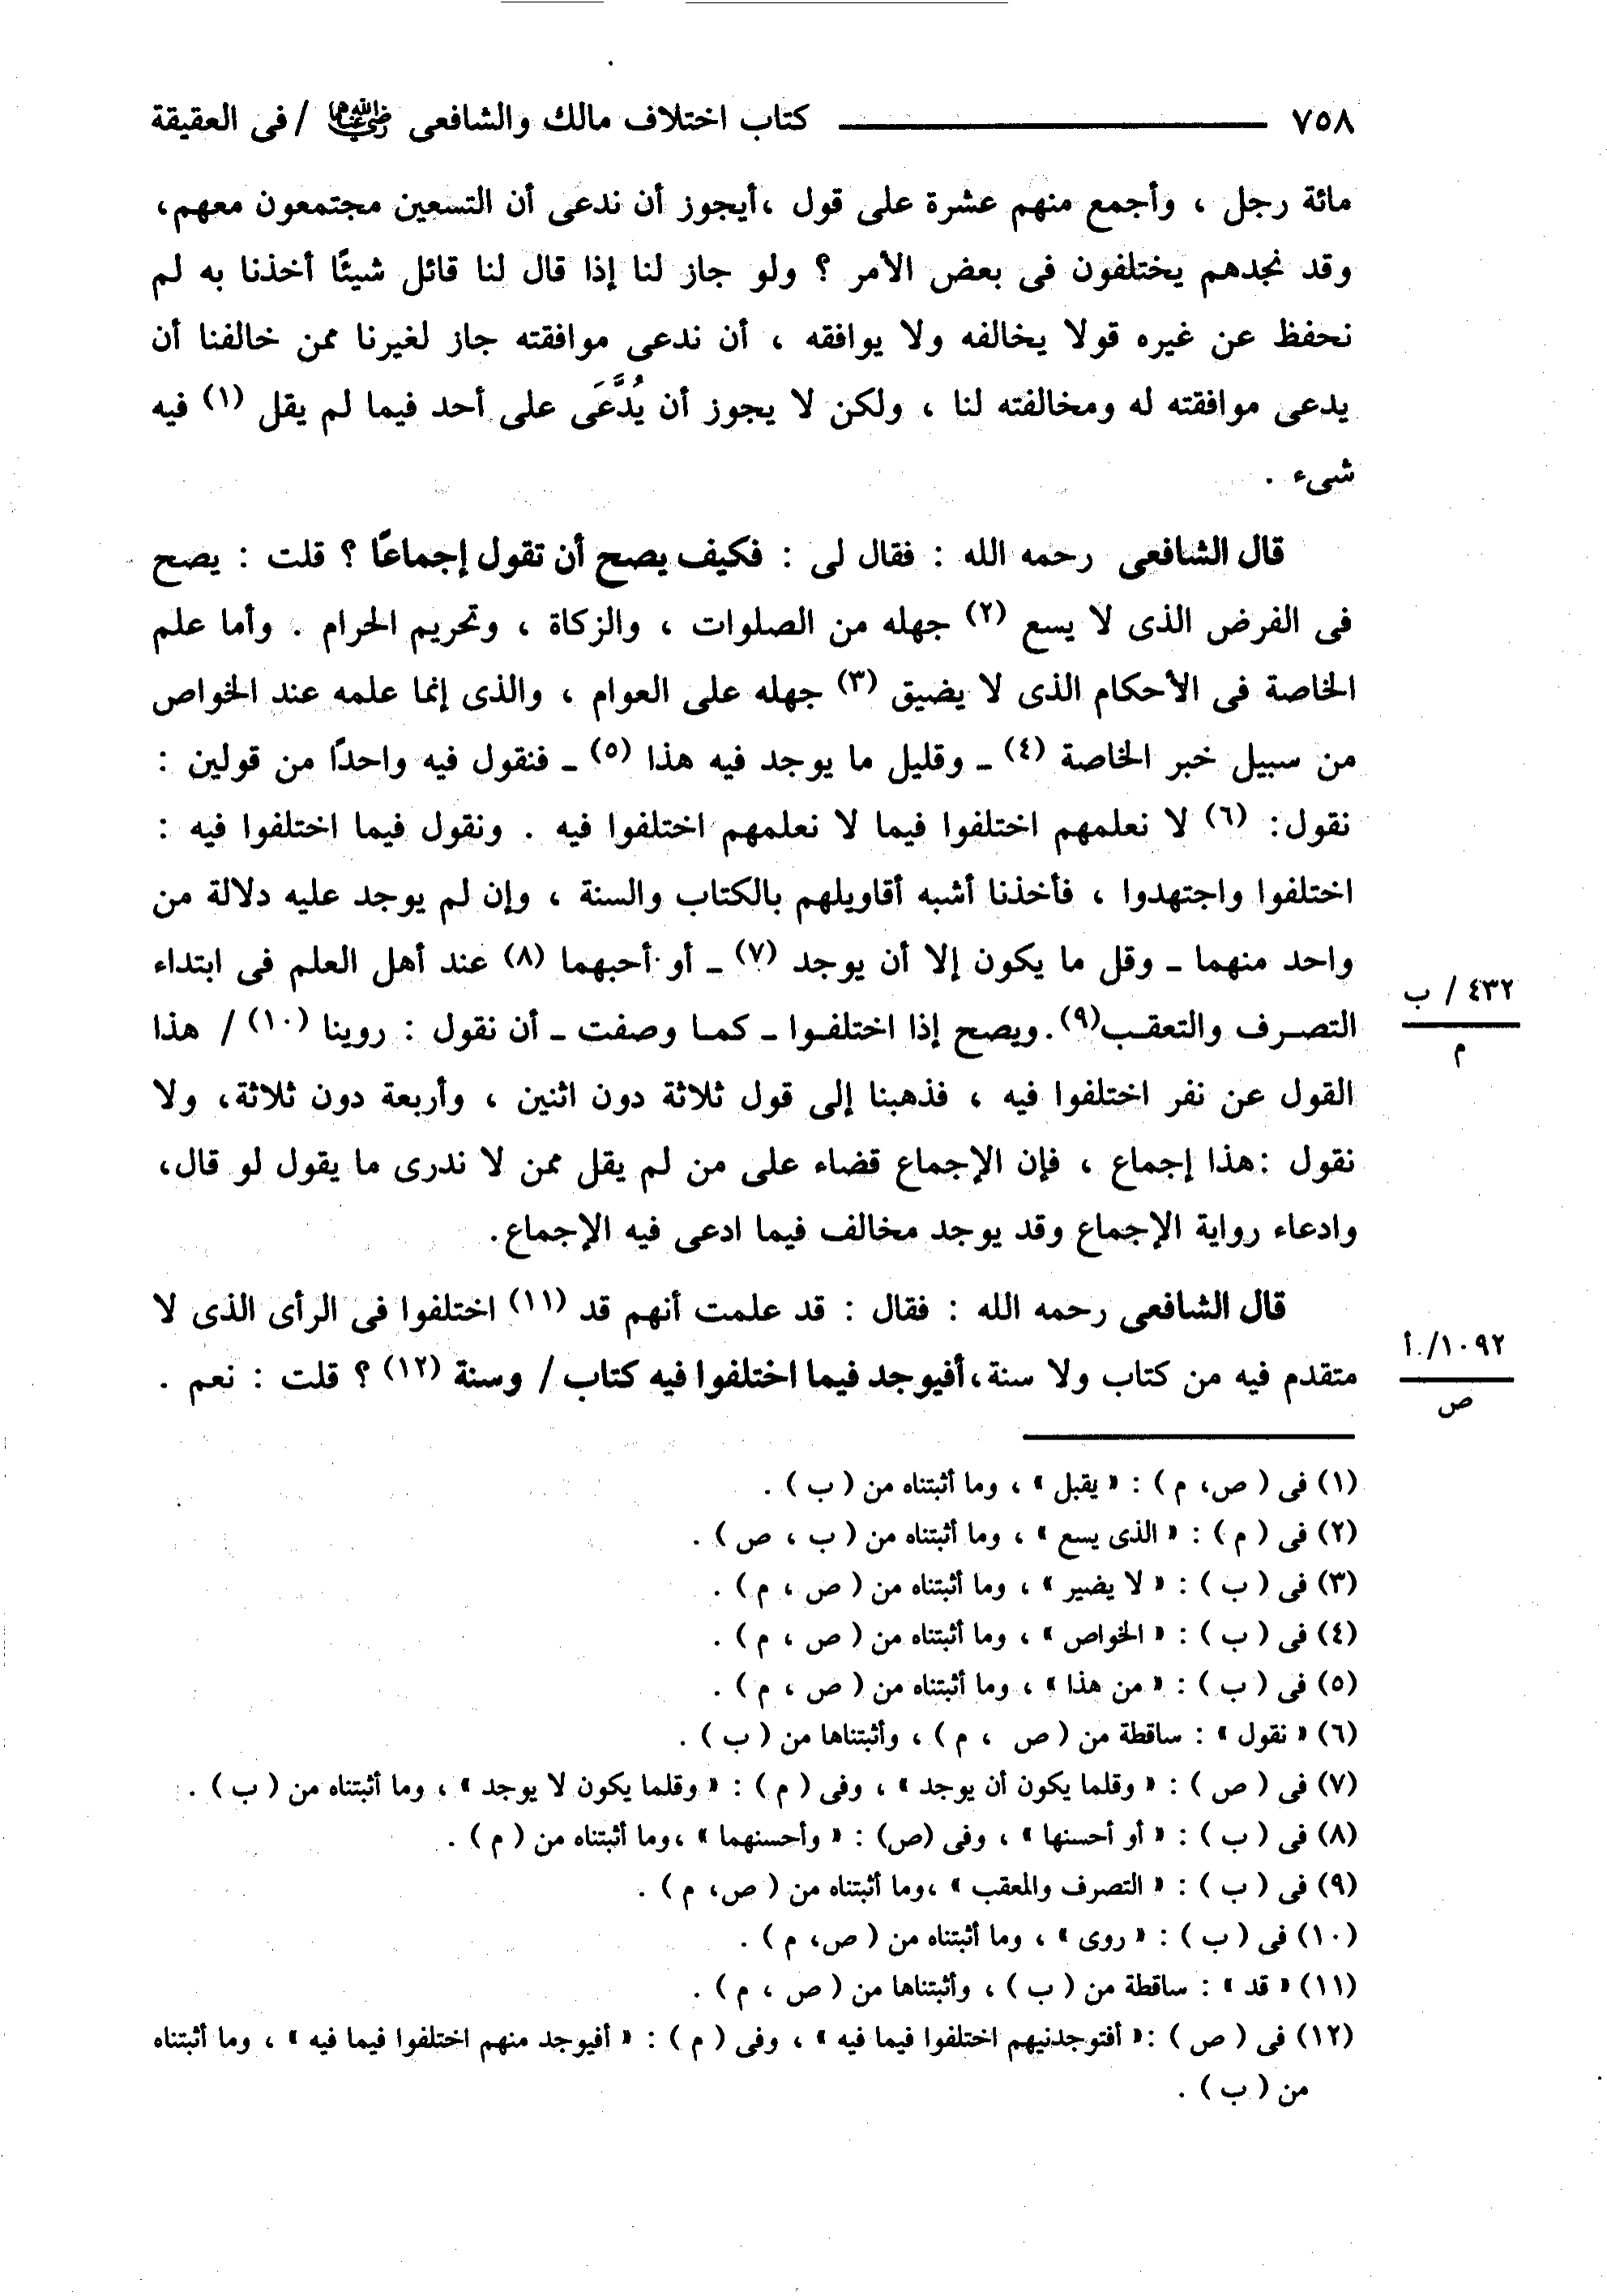 ٧٥٨ كتاب اختلاف مالك والشافعى رضي الله عنهما / فى العقيقة
مائة رجل ، وأجمع منهم عشرة على قول ،أيجوز أن ندعى أن التسعين مجتمعون معهم،
وقد نجدهم يختلفون فى بعض الأمر ؟ ولو جاز لنا إذا قال لنا قائل شيئًا أخذنا به لم
نحفظ عن غيره قولا يخالفه ولا يوافقه ، أن ندعى موافقته جاز لغيرنا ممن خالفنا أن
يدعى موافقته له ومخالفته لنا ، ولكن لا يجوز أن يُدَّعَى على أحد فيما لم يقل (١) فيه
شىء .
قال الشافعى رحمه الله : فقال لى : فكيف يصح أن تقول إجماعًا ؟ قلت : يصح
فى الفرض الذى لا يسع (٢) جهله من الصلوات ، والزكاة ، وتحريم الحرام . وأما علم
الخاصة فى الأحكام الذى لا يضيق (٣) جهله على العوام ، والذى إنما علمه عند الخواص
من سبيل خبر الخاصة (٤) ـ وقليل ما يوجد فيه هذا (٥) ـ فنقول فيه واحدًا من قولين :
نقول: (٦) لا نعلمهم اختلفوا فيما لا نعلمهم اختلفوا فيه . ونقول فيما اختلفوا فيه :
اختلفوا واجتهدوا ، فأخذنا أشبه أقاويلهم بالكتاب والسنة ، وإن لم يوجد عليه دلالة من
واحد منهما ـ وقل ما يكون إلا أن يوجد (٧) ـ أو أحبهما (٨) عند أهل العلم فى ابتداء
٤٣٢ / ب
التصرف والتعقب(٩).ويصح إذا اختلفوا ـ كما وصفت ـ أن نقول : روينا (١٠) / هذا
م
القول عن نفر اختلفوا فيه ، فذهبنا إلى قول ثلاثة دون اثنين ، وأربعة دون ثلاثة، ولا
نقول :هذا إجماع ، فإن الإجماع قضاء على من لم يقل ممن لا ندرى ما يقول لو قال،
وادعاء رواية الإجماع وقد يوجد مخالف فيما ادعى فيه الإجماع.
قال الشافعى رحمه الله : فقال : قد علمت أنهم قد (١١) اختلفوا فى الرأى الذى لا
١٠٩٢/ أ
متقدم فيه من كتاب ولا سنة،أفيوجد فيما اختلفوا فيه كتاب / وسنة (١٢) ؟ قلت : نعم .
ص
(١) فى ( ص، م ) : « يقبل » ، وما أثبتناه من ( ب ) .
(٢) فى ( م ) : « الذى يسع » ، وما أثبتناه من ( ب ، ص ) .
(٣) فى ( ب ) : « لا يضير » ، وما أثبتناه من ( ص ، م ) .
(٤) فى ( ب ) : « الخواص » ، وما أثبتناه من ( ص ، م ) .
(٥) فى ( ب ) : « من هذا » ، وما أثبتناه من ( ص ، م ) .
(٦) « نقول » : ساقطة من ( ص ، م ) ، وأثبتناها من ( ب ) .
(٧) فى ( ص ) : « وقلما يكون أن يوجد » ، وفى ( م ) : « وقلما يكون لا يوجد » ، وما أثبتناه من ( ب ) .
(٨) فى ( ب ) : « أو أحسنها » ، وفى (ص) : « وأحسنهما » ،وما أثبتناه من ( م ) .
(٩) فى ( ب ) : « التصرف والمعقب » ،وما أثبتناه من ( ص، م ) .
(١٠) فى ( ب ) : « روى » ، وما أثبتناه من ( ص، م ) .
(١١) « قد » : ساقطة من ( ب ) ، وأثبتناها من ( ص ، م ) .
(١٢) فى ( ص ) :« أفتوجدنيهم اختلفوا فيما فيه » ، وفى ( م ) : « أفيوجد منهم اختلفوا فيما فيه » ، وما أثبتناه
من ( ب ) .